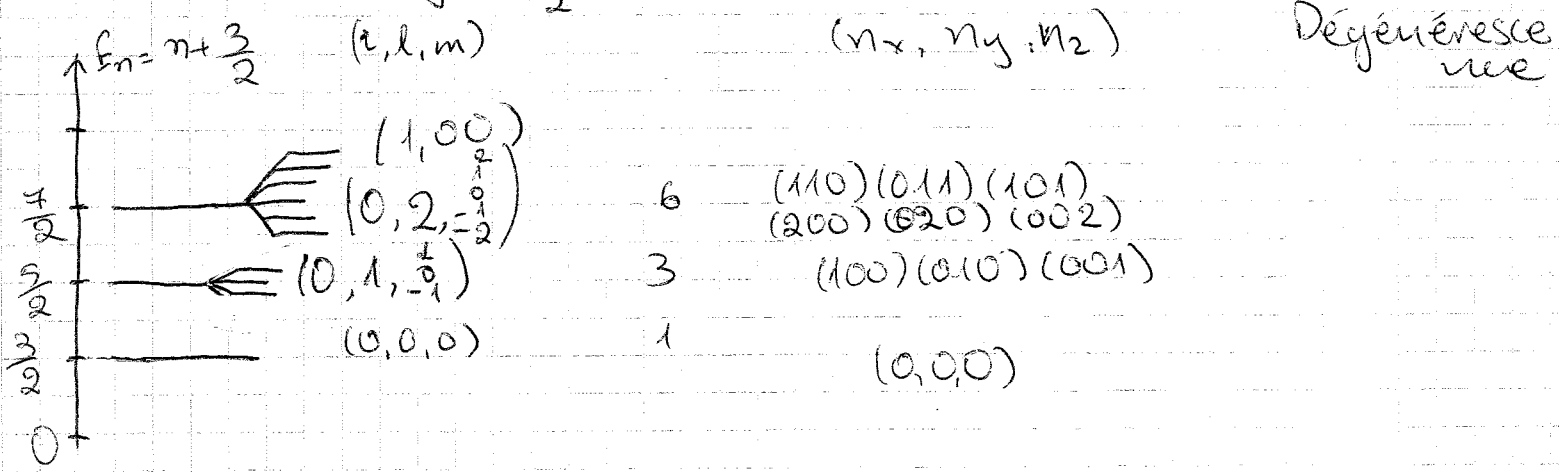 2
En = n + 3/2 (r, l, m) (nx, ny, nz) Dégénéresce
nce
(1,00)
7/2 (0, 2, 2 1 0 -1 -2) 6 (110) (011) (101)
(200) (020) (002)
5/2 (0, 1, 1 0 -1) 3 (100) (010) (001)
3/2 (0, 0, 0) 1
(0,0,0)
0